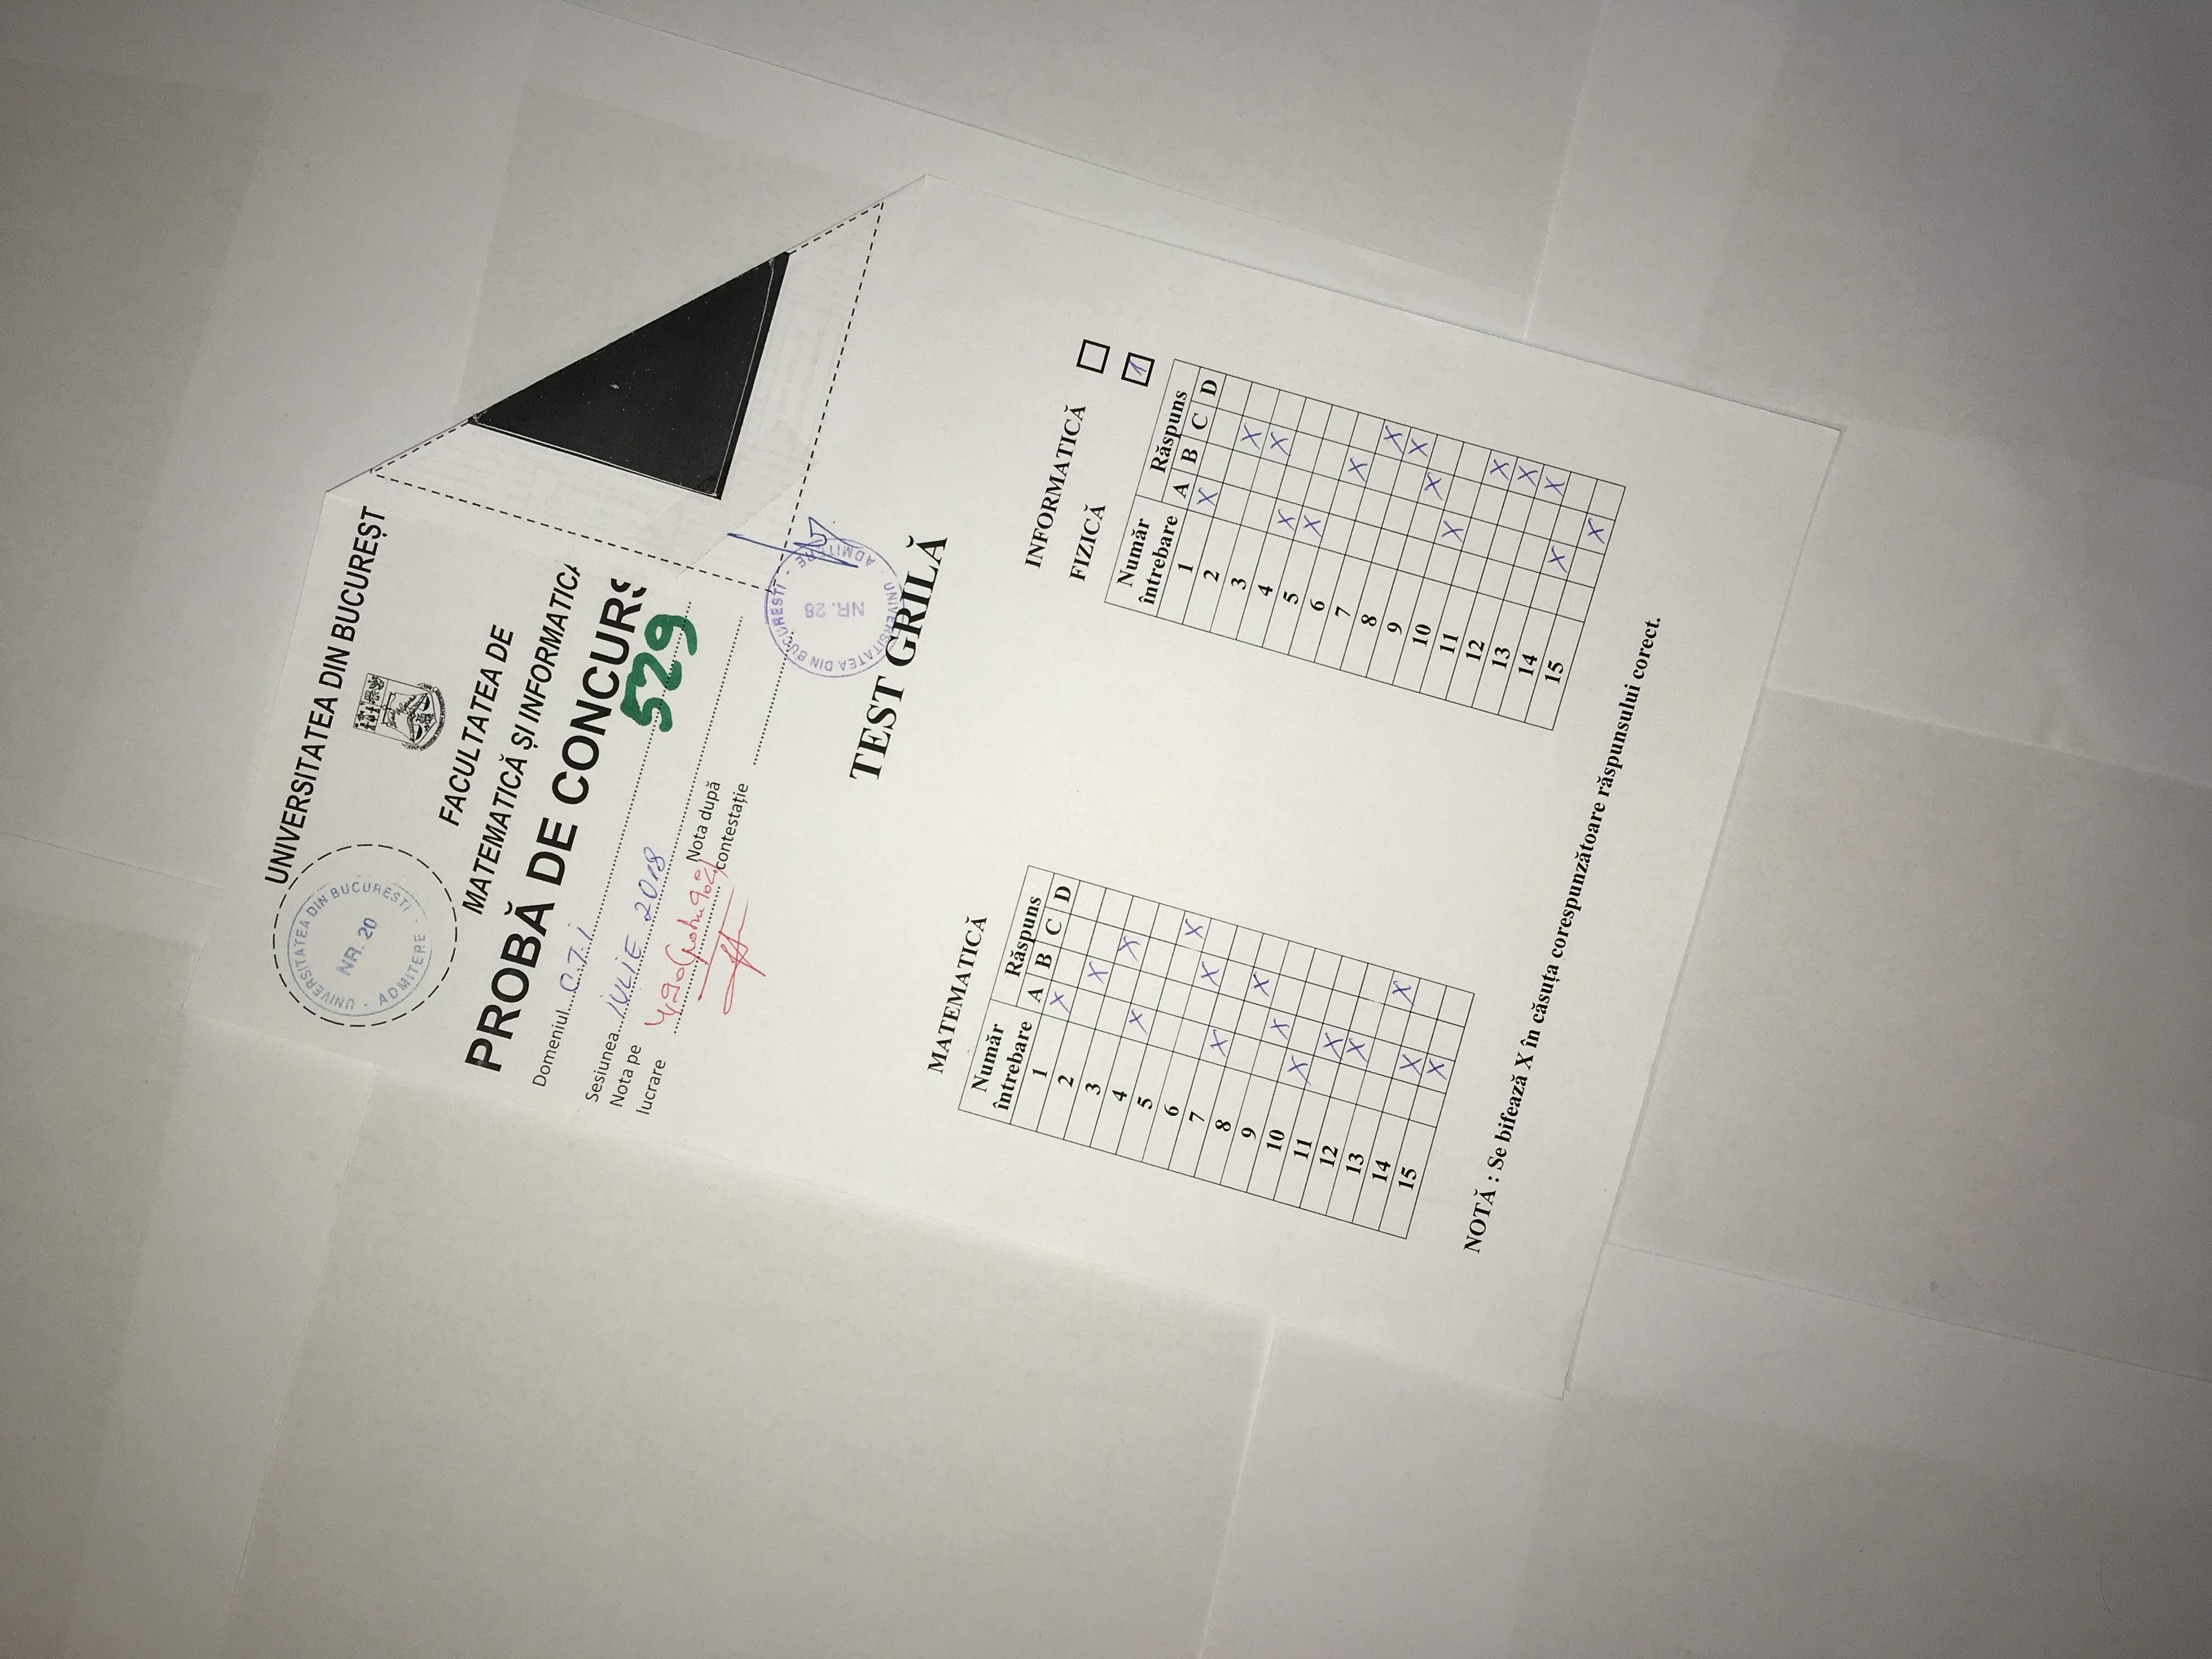 UNIVERSITATEA DIN BUCUREȘT
UNIVERSITATEA DIN BUCUREȘTI - ADMITERE -
NR. 20
FACULTATEA DE
MATEMATICĂ ȘI INFORMATICA
PROBĂ DE CONCURS
Domeniul C.T.I.
Sesiunea IULIE 2018
529
Nota pe lucrare 4,90
Nota după contestație
UNIVERSITATEA DIN BUCUREȘTI - ADMITERE -
NR. 28
TEST GRILĂ
MATEMATICĂ
Număr întrebare Răspuns
A B C D
1 X
2 X
3 X
4 X
5 X
6 X
7 X
8 X
9 X
10 X
11 X
12 X
13 X
14 X
15 X
INFORMATICĂ
FIZICĂ 1
Număr întrebare Răspuns
A B C D
1 X
2 X
3 X
4 X
5 X
6 X
7 X
8 X
9 X
10 X
11 X
12 X
13 X
14 X
15 X
NOTĂ : Se bifează X în căsuța corespunzătoare răspunsului corect.